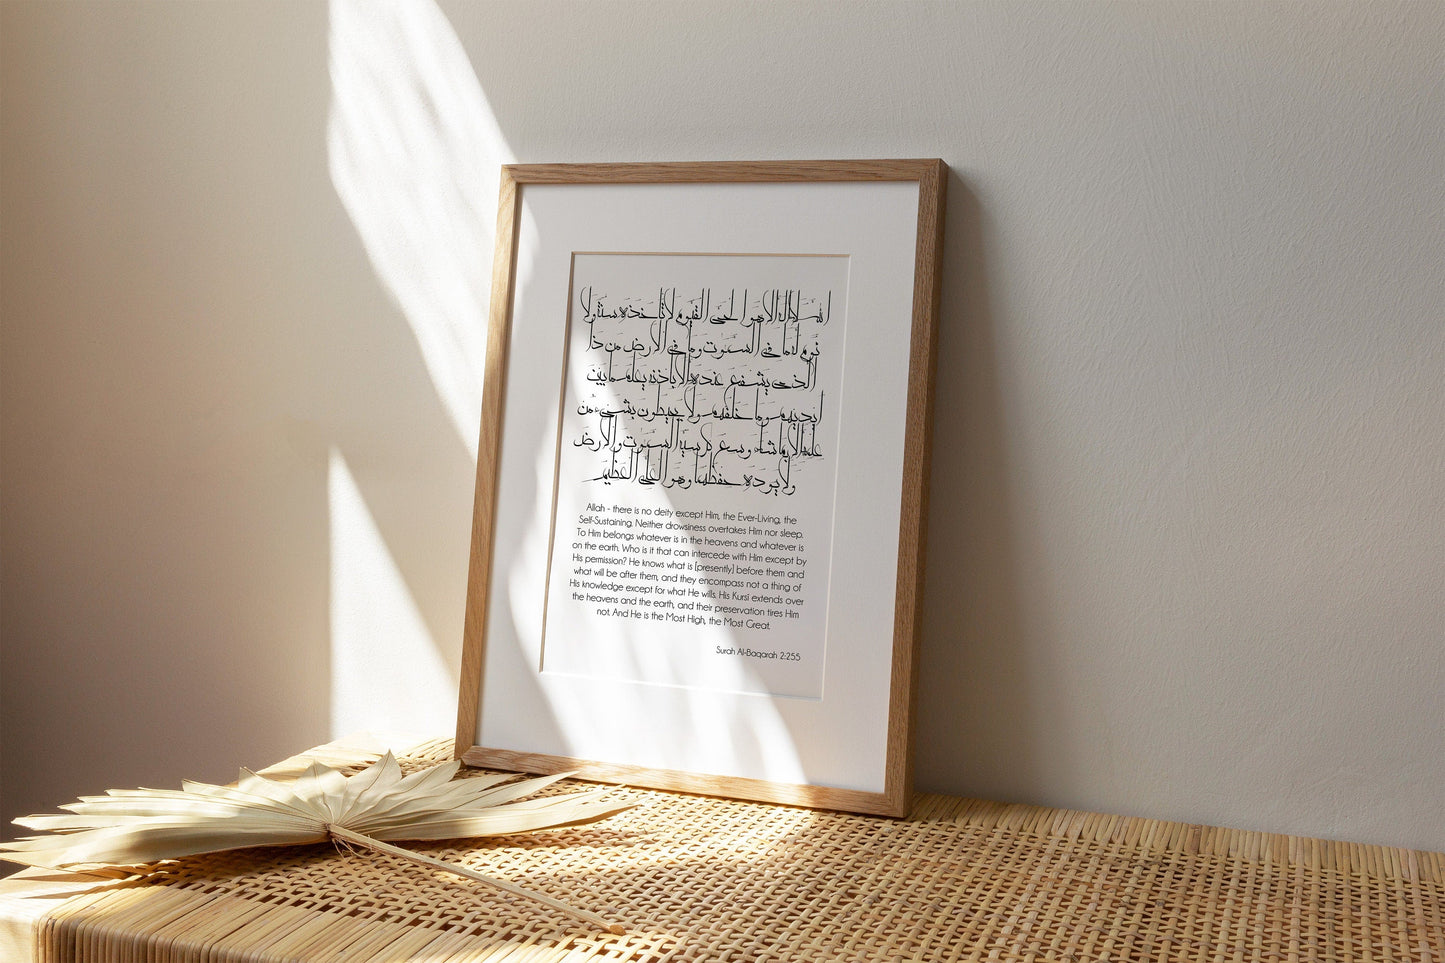 الله لا اله الا هو الحي القيوم لا تاخذه سنة ولا
نوم له ما في السموت وما في الارض من ذا
الذي يشفع عنده الا باذنه يعلم ما بين
ايديهم وما خلفهم ولا يحيطون بشيء من
علمه الا بما شاء وسع كرسيه السموت والارض
ولا يوده حفظهما وهو العلي العظيم
Allah - there is no deity except Him, the Ever-Living, the
Self-Sustaining. Neither drowsiness overtakes Him nor sleep.
To Him belongs whatever is in the heavens and whatever is
on the earth. Who is it that can intercede with Him except by
His permission? He knows what is [presently] before them and
what will be after them, and they encompass not a thing of
His knowledge except for what He wills. His Kursi extends over
the heavens and the earth, and their preservation tires Him
not. And He is the Most High, the Most Great.
Surah Al-Baqarah 2:255